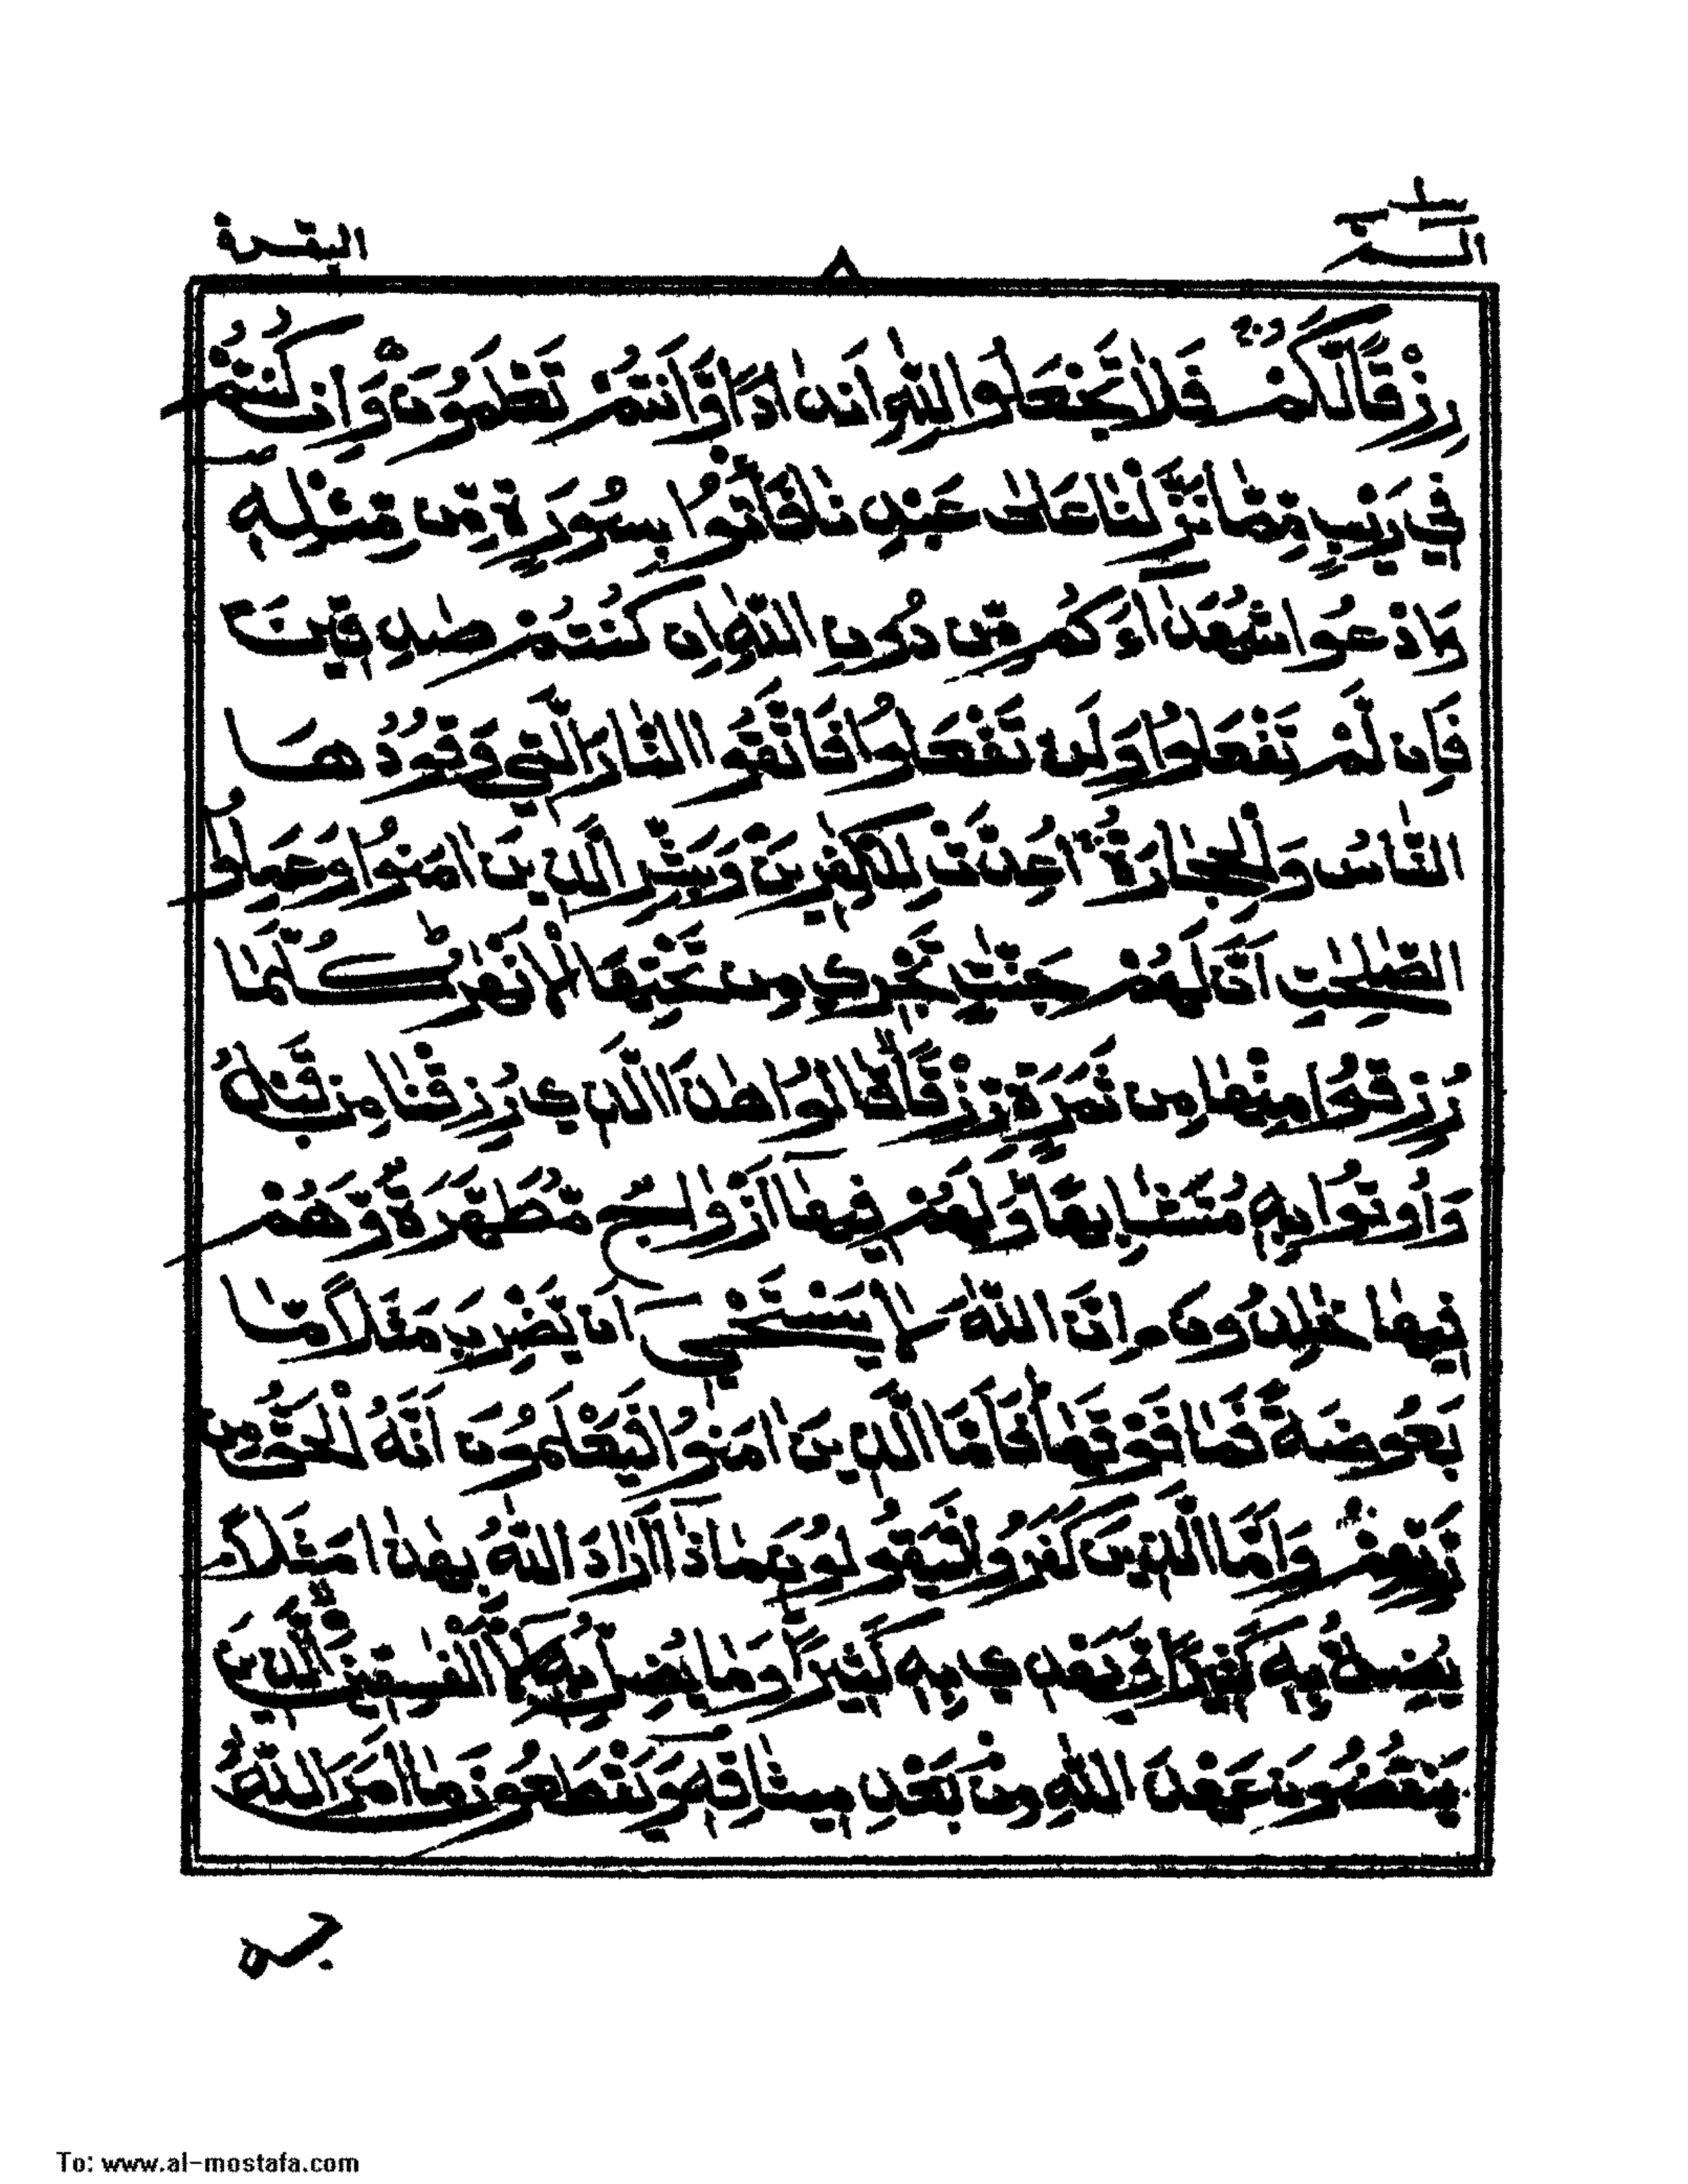 الم
البقرة
٨
رِزْقًا لَّكُمْ فَلَا تَجْعَلُوا لِلّٰهِ اَنْدَادًا وَّاَنْتُمْ تَعْلَمُوْنَ وَاِنْ كُنْتُمْ
فِيْ رَيْبٍ مِّمَّا نَزَّلْنَا عَلٰى عَبْدِنَا فَأْتُوْا بِسُوْرَةٍ مِّنْ مِّثْلِهٖ
وَادْعُوْا شُهَدَآءَكُمْ مِّنْ دُوْنِ اللّٰهِ اِنْ كُنْتُمْ صٰدِقِيْنَ
فَاِنْ لَّمْ تَفْعَلُوْا وَلَنْ تَفْعَلُوْا فَاتَّقُوا النَّارَ الَّتِيْ وَقُوْدُهَا
النَّاسُ وَالْحِجَارَةُ اُعِدَّتْ لِلْكٰفِرِيْنَ وَبَشِّرِ الَّذِيْنَ اٰمَنُوْا وَعَمِلُوا
الصّٰلِحٰتِ اَنَّ لَهُمْ جَنّٰتٍ تَجْرِيْ مِنْ تَحْتِهَا الْاَنْهٰرُ كُلَّمَا
رُزِقُوْا مِنْهَا مِنْ ثَمَرَةٍ رِّزْقًا قَالُوْا هٰذَا الَّذِيْ رُزِقْنَا مِنْ قَبْلُ
وَاُوتُوْا بِهٖ مُتَشَابِهًا وَلَهُمْ فِيْهَآ اَزْوَاجٌ مُّطَهَّرَةٌ وَّهُمْ
فِيْهَا خٰلِدُوْنَ اِنَّ اللّٰهَ لَا يَسْتَحْيٖٓ اَنْ يَّضْرِبَ مَثَلًا مَّا
بَعُوْضَةً فَمَا فَوْقَهَا فَاَمَّا الَّذِيْنَ اٰمَنُوْا فَيَعْلَمُوْنَ اَنَّهُ الْحَقُّ مِنْ
رَّبِّهِمْ وَاَمَّا الَّذِيْنَ كَفَرُوْا فَيَقُوْلُوْنَ مَاذَآ اَرَادَ اللّٰهُ بِهٰذَا مَثَلًا م
يُضِلُّ بِهٖ كَثِيْرًا وَّيَهْدِيْ بِهٖ كَثِيْرًا وَمَا يُضِلُّ بِهٖٓ اِلَّا الْفٰسِقِيْنَ الَّذِيْنَ
يَنْقُضُوْنَ عَهْدَ اللّٰهِ مِنْ بَعْدِ مِيْثَاقِهٖ وَيَقْطَعُوْنَ مَا اَمَرَ اللّٰهُ
بِهٖ
To: www.al-mostafa.com